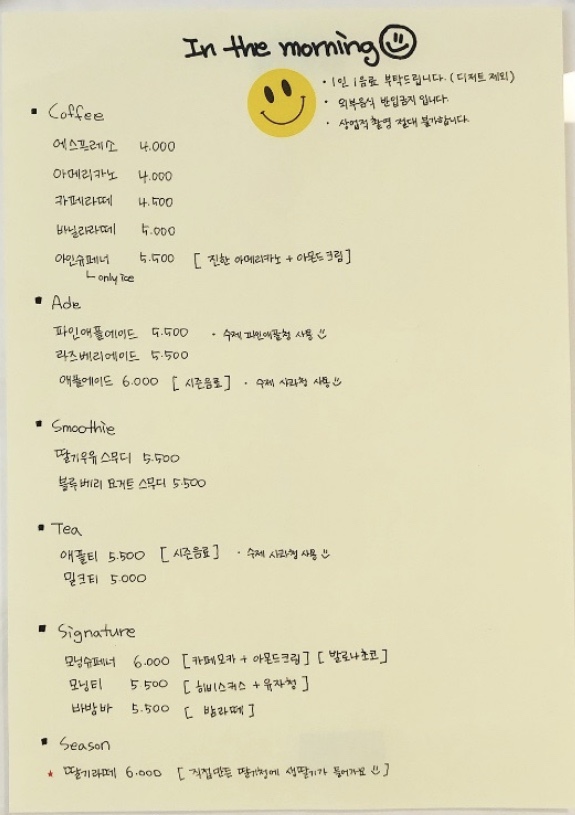 In the morning
· 1인 1음료 부탁드립니다. (디저트 제외)
· 외부음식 반입금지 입니다.
· 상업적 촬영 절대 불가합니다.
▪ Coffee
에스프레소 4.000
아메리카노 4.000
카페라떼 4.500
바닐라라떼 5.000
아인슈페너 5.500 [ 진한 아메리카노 + 아몬드크림 ]
only Ice
▪ Ade
파인애플에이드 5.500 · 수제 파인애플청 사용
라즈베리에이드 5.500
애플에이드 6.000 [ 시즌음료 ] · 수제 사과청 사용
▪ Smoothie
딸기우유 스무디 5.500
블루베리 요거트 스무디 5.500
▪ Tea
애플티 5.500 [ 시즌음료 ] · 수제 사과청 사용
밀크티 5.000
▪ Signature
모닝슈페너 6.000 [ 카페모카 + 아몬드크림 ] [ 발로나초코 ]
모닝티 5.500 [ 히비스커스 + 유자청 ]
바밤바 5.500 [ 밤라떼 ]
▪ Season
★ 딸기라떼 6.000 [ 직접만든 딸기청에 생딸기가 들어가요 ]